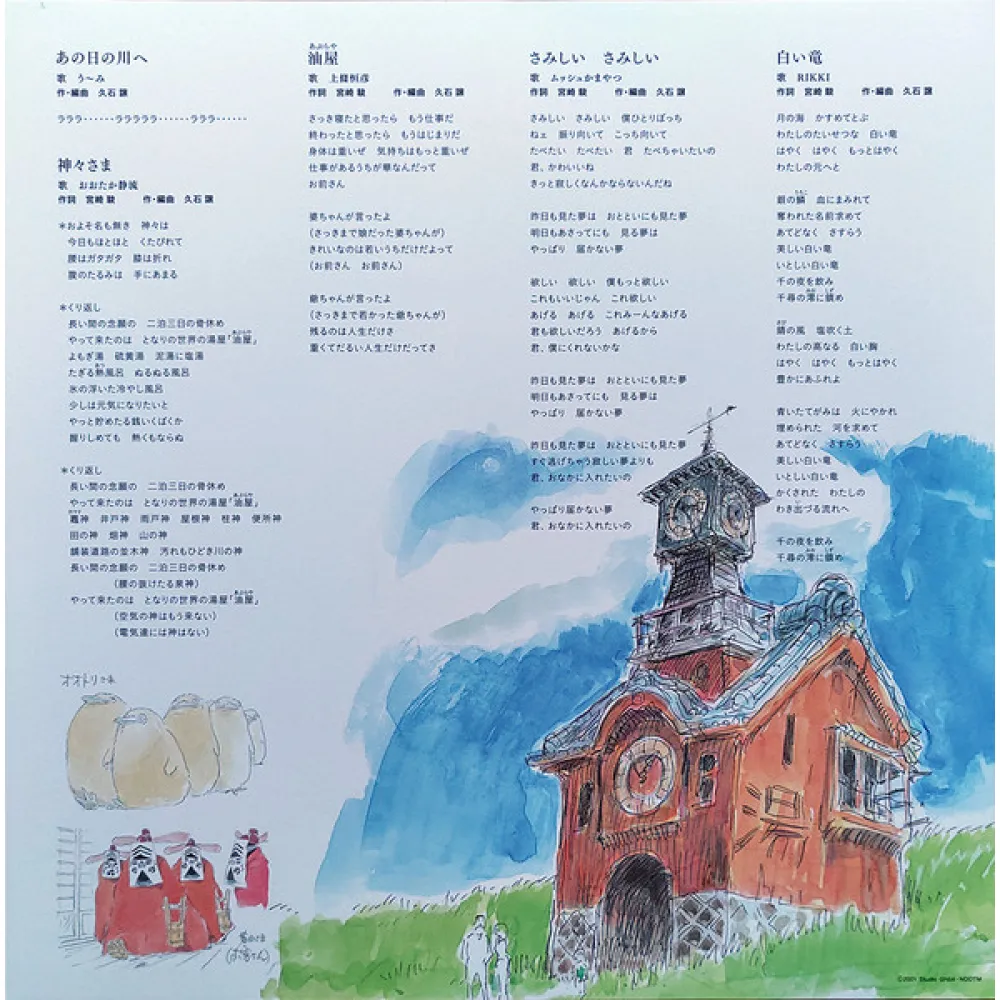 あの日の川へ
歌　う〜み
作・編曲　久石 譲
ラララ……ラララララ……ラララ……
神々さま
歌　おおたか静流
作詞　宮崎 駿　　作・編曲　久石 譲
＊およそ名も無き　神々は
今日もほとほと　くたびれて
腰はガタガタ　膝は折れ
腹のたるみは　手にあまる
＊くり返し
長い間の念願の　二泊三日の骨休め
やって来たのは　となりの世界の湯屋「油屋」
よもぎ湯　硫黄湯　泥湯に塩湯
たぎる熱風呂　ぬるぬる風呂
氷の浮いた冷やし風呂
少しは元気になりたいと
やっと貯めたる銭いくばくか
握りしめても　熱くもならぬ
＊くり返し
長い間の念願の　二泊三日の骨休め
やって来たのは　となりの世界の湯屋「油屋」
竈神　井戸神　雨戸神　屋根神　柱神　便所神
田の神　畑神　山の神
舗装道路の並木神　汚れもひどき川の神
長い間の念願の　二泊三日の骨休め
（腰の抜けたる泉神）
やって来たのは　となりの世界の湯屋「油屋」
（空気の神はもう来ない）
（電気達には神はない）
オオトリさま
（お客さん）
あぶらや
油屋
歌　上條恒彦
作詞　宮崎 駿　　作・編曲　久石 譲
さっき寝たと思ったら　もう仕事だ
終わったと思ったら　もうはじまりだ
身体は重いぜ　気持ちはもっと重いぜ
仕事があるうちが華なんだって
お前さん
婆ちゃんが言ったよ
（さっきまで娘だった婆ちゃんが）
きれいなのは若いうちだけだよって
（お前さん　お前さん）
爺ちゃんが言ったよ
（さっきまで若かった爺ちゃんが）
残るのは人生だけさ
重くてだるい人生だけだってさ
さみしい　さみしい
歌　ムッシュかまやつ
作詞　宮崎 駿　　作・編曲　久石 譲
さみしい　さみしい　僕ひとりぼっち
ねェ　振り向いて　こっち向いて
たべたい　たべたい　君　たべちゃいたいの
君、かわいいね
きっと寂しくなんかならないんだね
昨日も見た夢は　おとといにも見た夢
明日もあさってにも　見る夢は
やっぱり　届かない夢
欲しい　欲しい　僕もっと欲しい
これもいいじゃん　これ欲しい
あげる　あげる　これみーんなあげる
君も欲しいだろう　あげるから
君、僕にくれないかな
昨日も見た夢は　おとといにも見た夢
明日もあさってにも　見る夢は
やっぱり　届かない夢
昨日も見た夢は　おとといにも見た夢
すぐ逃げちゃう寂しい夢よりも
君、おなかに入れたいの
やっぱり届かない夢
君、おなかに入れたいの
白い竜
歌　RIKKI
作詞　宮崎 駿　　作・編曲　久石 譲
月の海　かすめてとぶ
わたしのたいせつな　白い竜
はやく　はやく　もっとはやく
わたしの元へと
銀の鱗　血にまみれて
奪われた名前求めて
あてどなく　さすらう
美しい白い竜
いとしい白い竜
千の夜を飲み
千尋の澪に鎮め
錆の風　塩吹く土
わたしの高なる　白い胸
はやく　はやく　もっとはやく
豊かにあふれよ
青いたてがみは　火にやかれ
埋められた　河を求めて
あてどなく　さすらう
美しい白い竜
いとしい白い竜
かくされた　わたしの
わき出づる流れへ
千の夜を飲み
千尋の澪に鎮め
©2001 Studio Ghibli・NDDTM